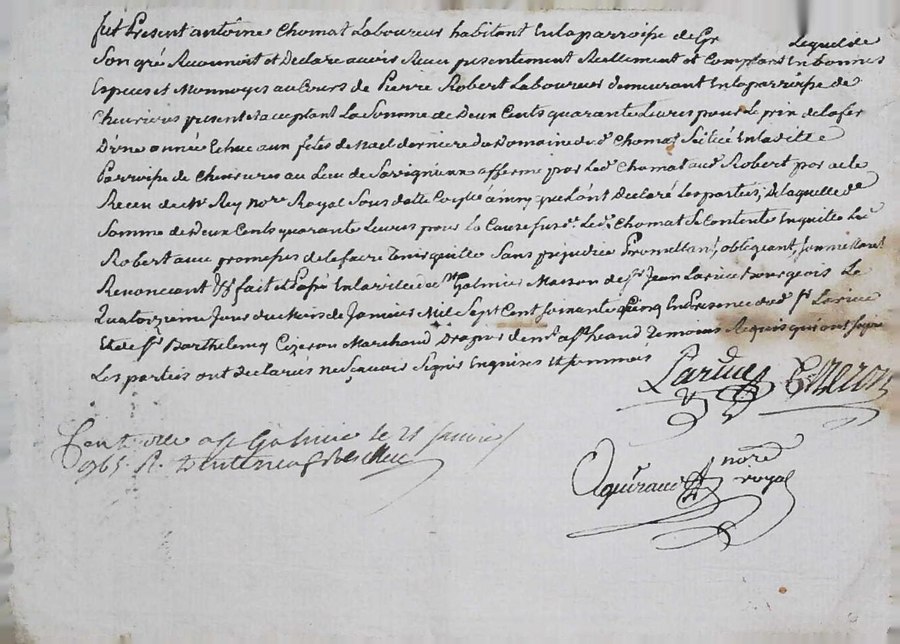 fut Present antoine Chomat Laboureur habitant En la parroisse de Gr lequel de
Son gré Reconnoit et Declare avoir Receu presentement Reellement et Comptant En bonnes
Especes et Monnoyes au Cours de Pierre Robert Laboureur demeurant En la parroisse de
Chevrieres present et acceptant La Somme de Deux Cents quarante Livres pour Le prix de la ferme
D'une année Echue aux fetes de Noel derniere du Domaine du d. Chomat Scitué En la ditte
Parroisse de Chevrieres au Lieu de afferme par Led. Chomat aud. Robert par acte
Receu de Me Rey nore Royal Sous datte ainsy que L'ont Declaré Les parties, De laquelle de
Somme de Deux Cents quarante Livres pour la Cause susd. Led. Chomat Se Contente En quitte Led.
Robert avec promesse de le faire Tenir quitte Sans prejudice Promettant, obligeant, Soumettant
Renonceant &c fait et Passé En la ville de St Galmier Maison de Sr Jean Larive bourgeois Le
Quatorzieme Jour du Mois de Janvier Mil Sept Cent Soixante Cinq En Presence dud. Sr Larive
Et de Sr Barthelemy Cizeron Marchand Drapier dem.t a St heand Temoins Requis qui ont Signé
Les parties ont Declarés ne Scavoir Signer Enquises et Sommés
Larive Cizeron
Contrôlé a St Galmier le 21 Janvier
1765. R.
nore
royal